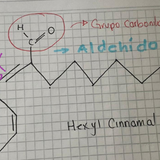 H O
C
Grupo Carbonilo
Aldehído
Hexyl Cinnamal